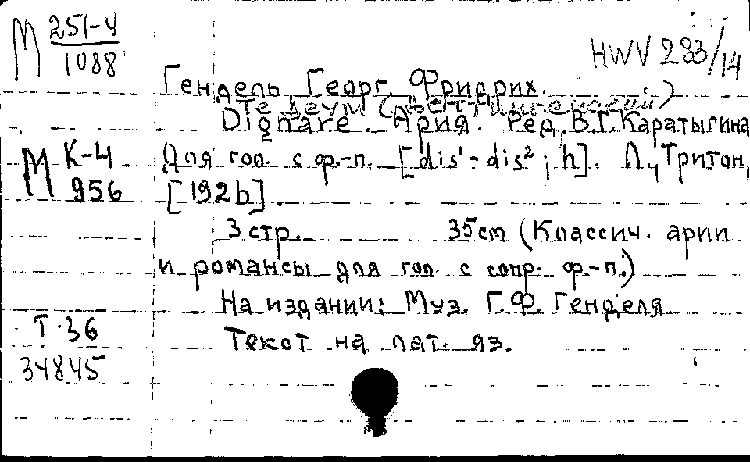 М 251-4
1088
HWV 283/14
Гендель, Георг Фридрих.
Те Деум (Деттингенский)
Dignare. Ария. Ред. В.Г. Каратыгина
М К-4
956
Для гол. с ф.-п. [dis¹ - dis²; h]. Л., Тритон,
[192b]
3 стр. 35 cm (Классич. арии
и романсы для гол. с сопр. ф.-п.)
На издании: Муз. Г.Ф. Генделя
Т 36
34845
Текст на лат. яз.